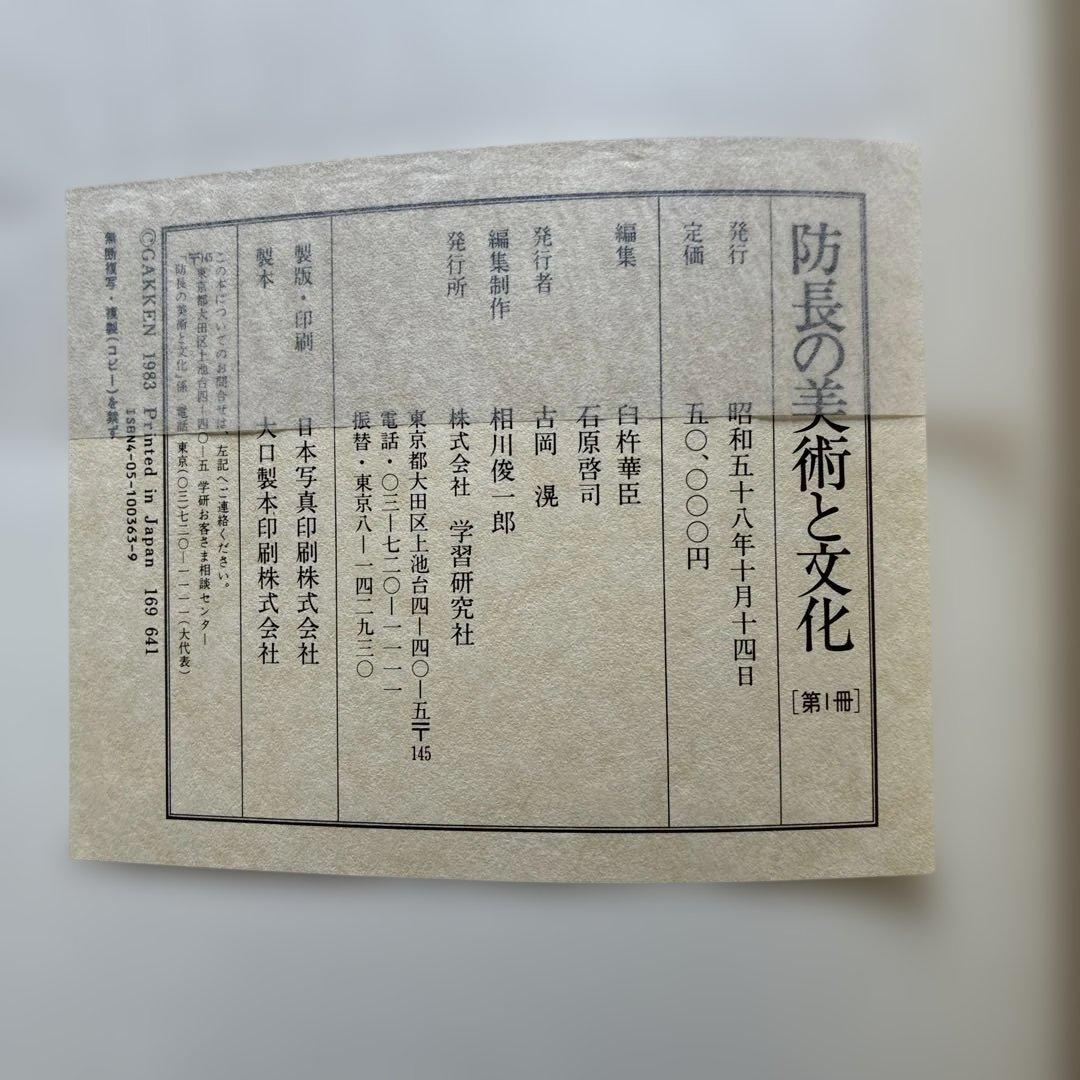 防長の美術と文化 [第1冊]
発行 昭和五十八年十月十四日
定価 五〇、〇〇〇円
編集 臼杵華臣
石原啓司
発行者 古岡 滉
編集制作 相川俊一郎
発行所 株式会社 学習研究社
東京都大田区上池台四―四〇―五〒145
電話・〇三―七二〇―一一一一
振替・東京八―一四二九三〇
製版・印刷 日本写真印刷株式会社
製本 大口製本印刷株式会社
この本についてのお問合せは、左記へご連絡ください。
〒145東京都大田区上池台四―四〇―五 学研お客さま相談センター
「防長の美術と文化」係 電話 東京(〇三)七二〇―一一一一(大代表)
©GAKKEN 1983 Printed in Japan 169 641
ISBN4-05-100363-9
無断複写・複製(コピー)を禁ず